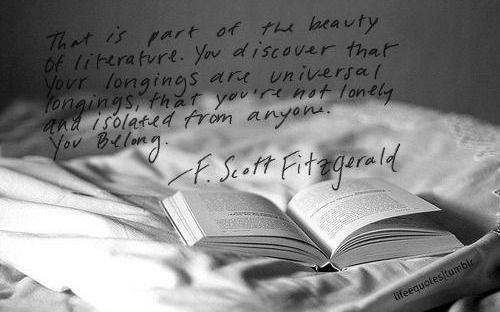 That is part of the beauty
of literature. You discover that
your longings are universal
longings, that you're not lonely
and isolated from anyone.
You Belong.
—F. Scott Fitzgerald
lifeequotes|tumblr